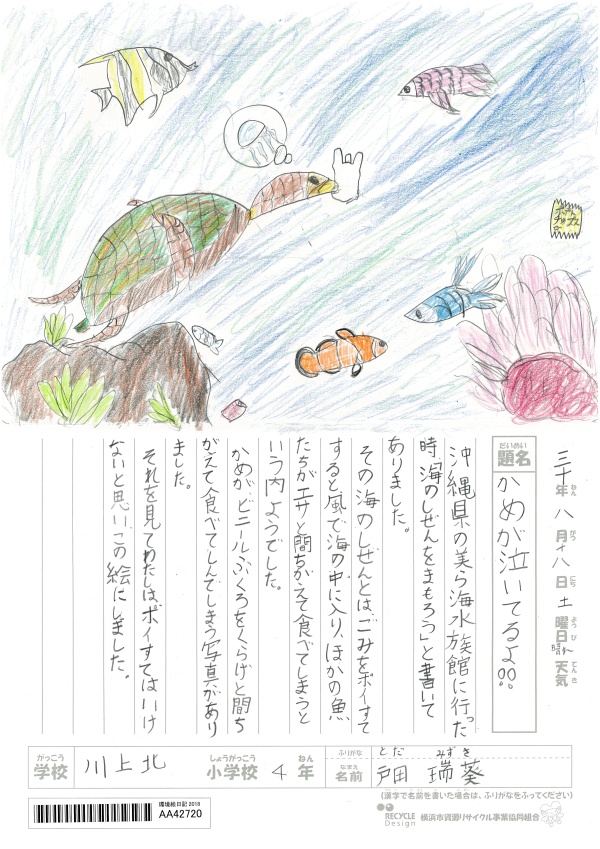 ポテト
チップス
三十年八月十八日土曜日晴れ天気
ねん
がつ
にち
ようび
てんき
だいめい
題名
かめが泣いてるよ!!
沖縄県の美ら海水族館に行った
時、「海のしぜんをまもろう」と書いて
ありました。
その海のしぜんとは、ごみをポイすて
すると風で海の中に入り、ほかの魚
たちがエサと間ちがえて食べてしまうと
いう内ようでした。
かめが、ビニールぶくろをくらげと間ち
がえて食べてしんでしまう写真があり
ました。
それを見てわたしは、ポイすてはいけ
ないと思い、この絵にしました。
がっこう
学校
川上北
しょうがっこう
小学校
4
ねん
年
ふりがな
とだ みずき
なまえ
名前
戸田 瑞葵
(漢字で名前を書いた場合は、ふりがなをふってください)
環境絵日記 2018
AA42720
RECYCLE Design
横浜市資源リサイクル事業協同組合